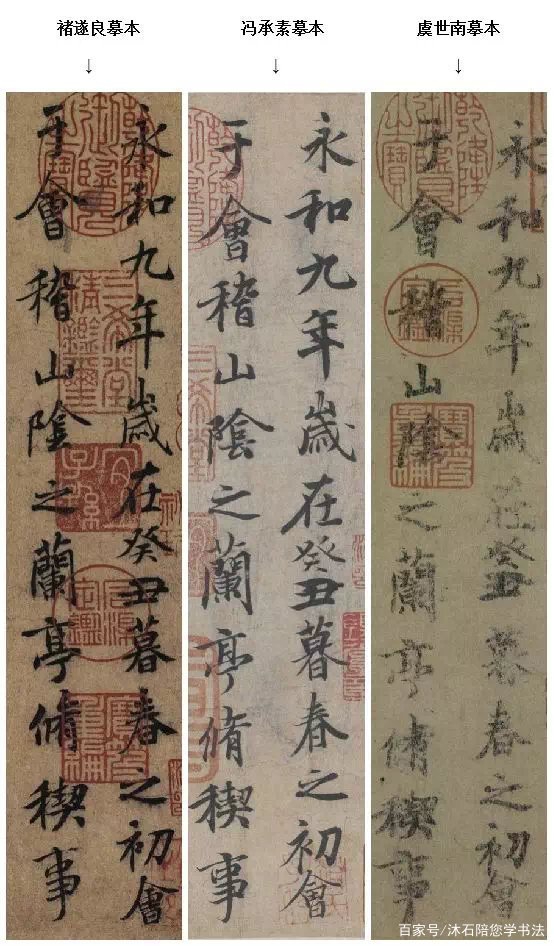 褚遂良摹本
↓
冯承素摹本
↓
虞世南摹本
↓
永和九年歲在癸丑暮春之初會
于會稽山陰之蘭亭脩禊事
永和九年歲在癸丑暮春之初會
于會稽山陰之蘭亭脩禊事
永和九年歲在癸丑暮春之初會
于會稽山陰之蘭亭脩禊事
三希堂精鑑璽
宜子孫
百家号/沐石陪您学书法